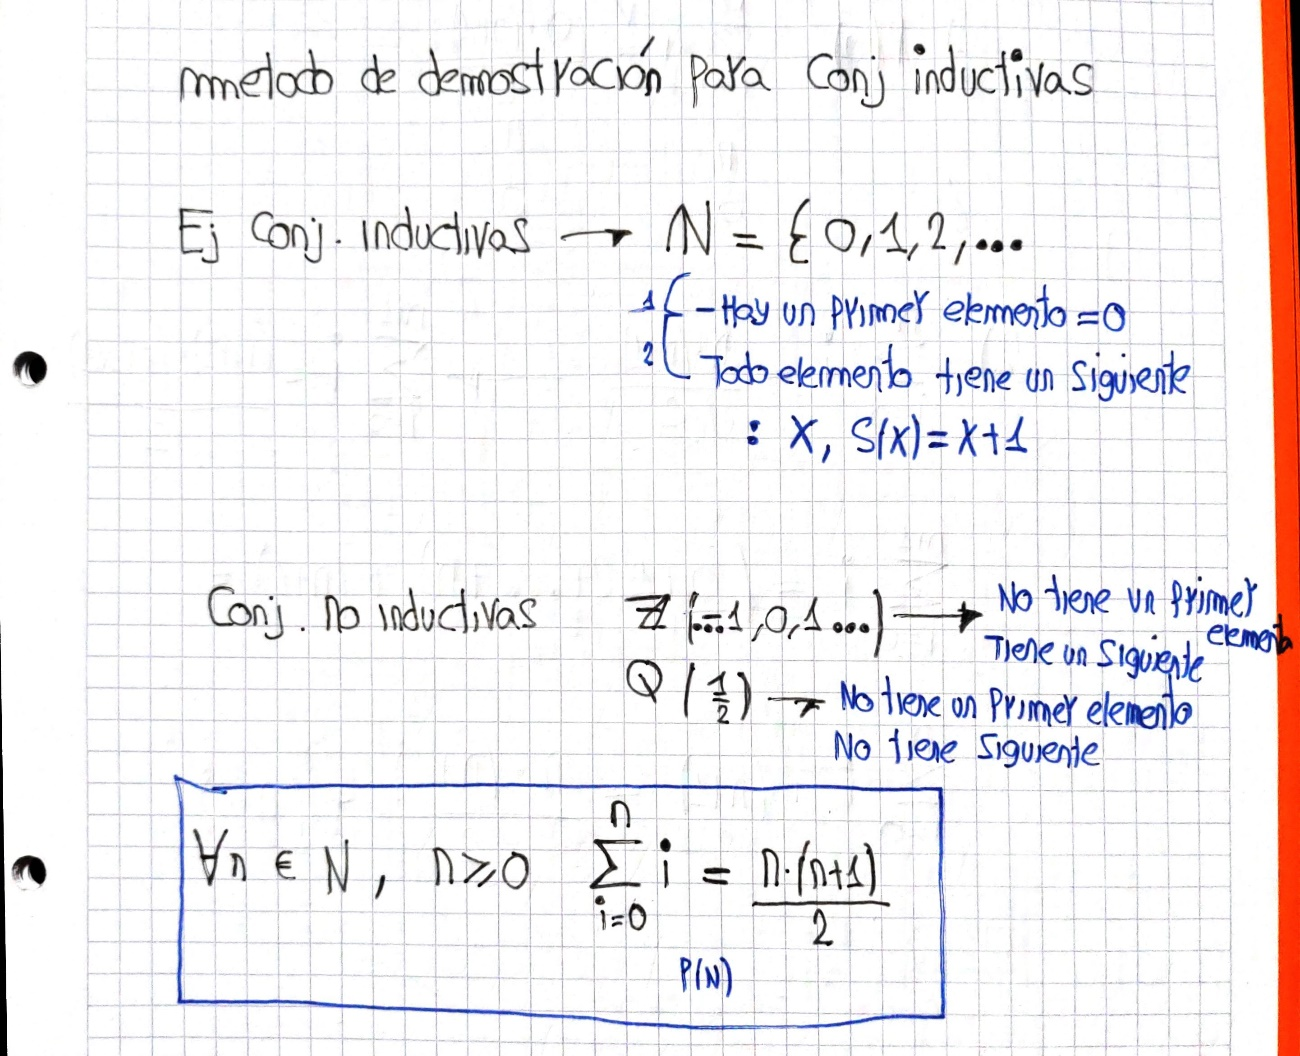 mmetodo de demostración para Conj inductivas
Ej Conj. inductivas → N = {0,1,2,...
1 { - Hay un primer elemento = 0
2 Todo elemento tiene un siguiente
: X, S(x) = X+1
Conj. no inductivas Z (...-1,0,1...) → No tiene un primer elemento
Tiene un siguiente
Q (1/2) → No tiene un primer elemento
No tiene siguiente
∀n ∈ N, n ≥ 0 ∑_{i=0}^{n} i = n·(n+1)/2
P(N)